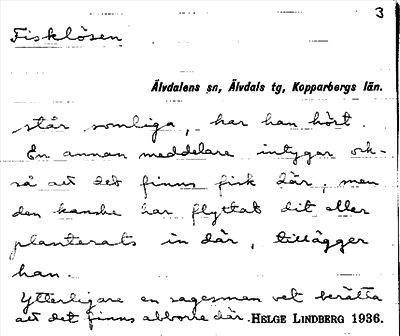 3
Fisklösen
Älvdalens sn, Älvdals tg, Kopparbergs län.
står somliga, har han hört.
En annan meddelare intygar ock-
så att det finns fisk där, men
den kanske har flyttat dit eller
planterats in där, tillägger
han.
Ytterligare en sagesman vet berätta
att det finns abborre där. HELGE LINDBERG 1936.